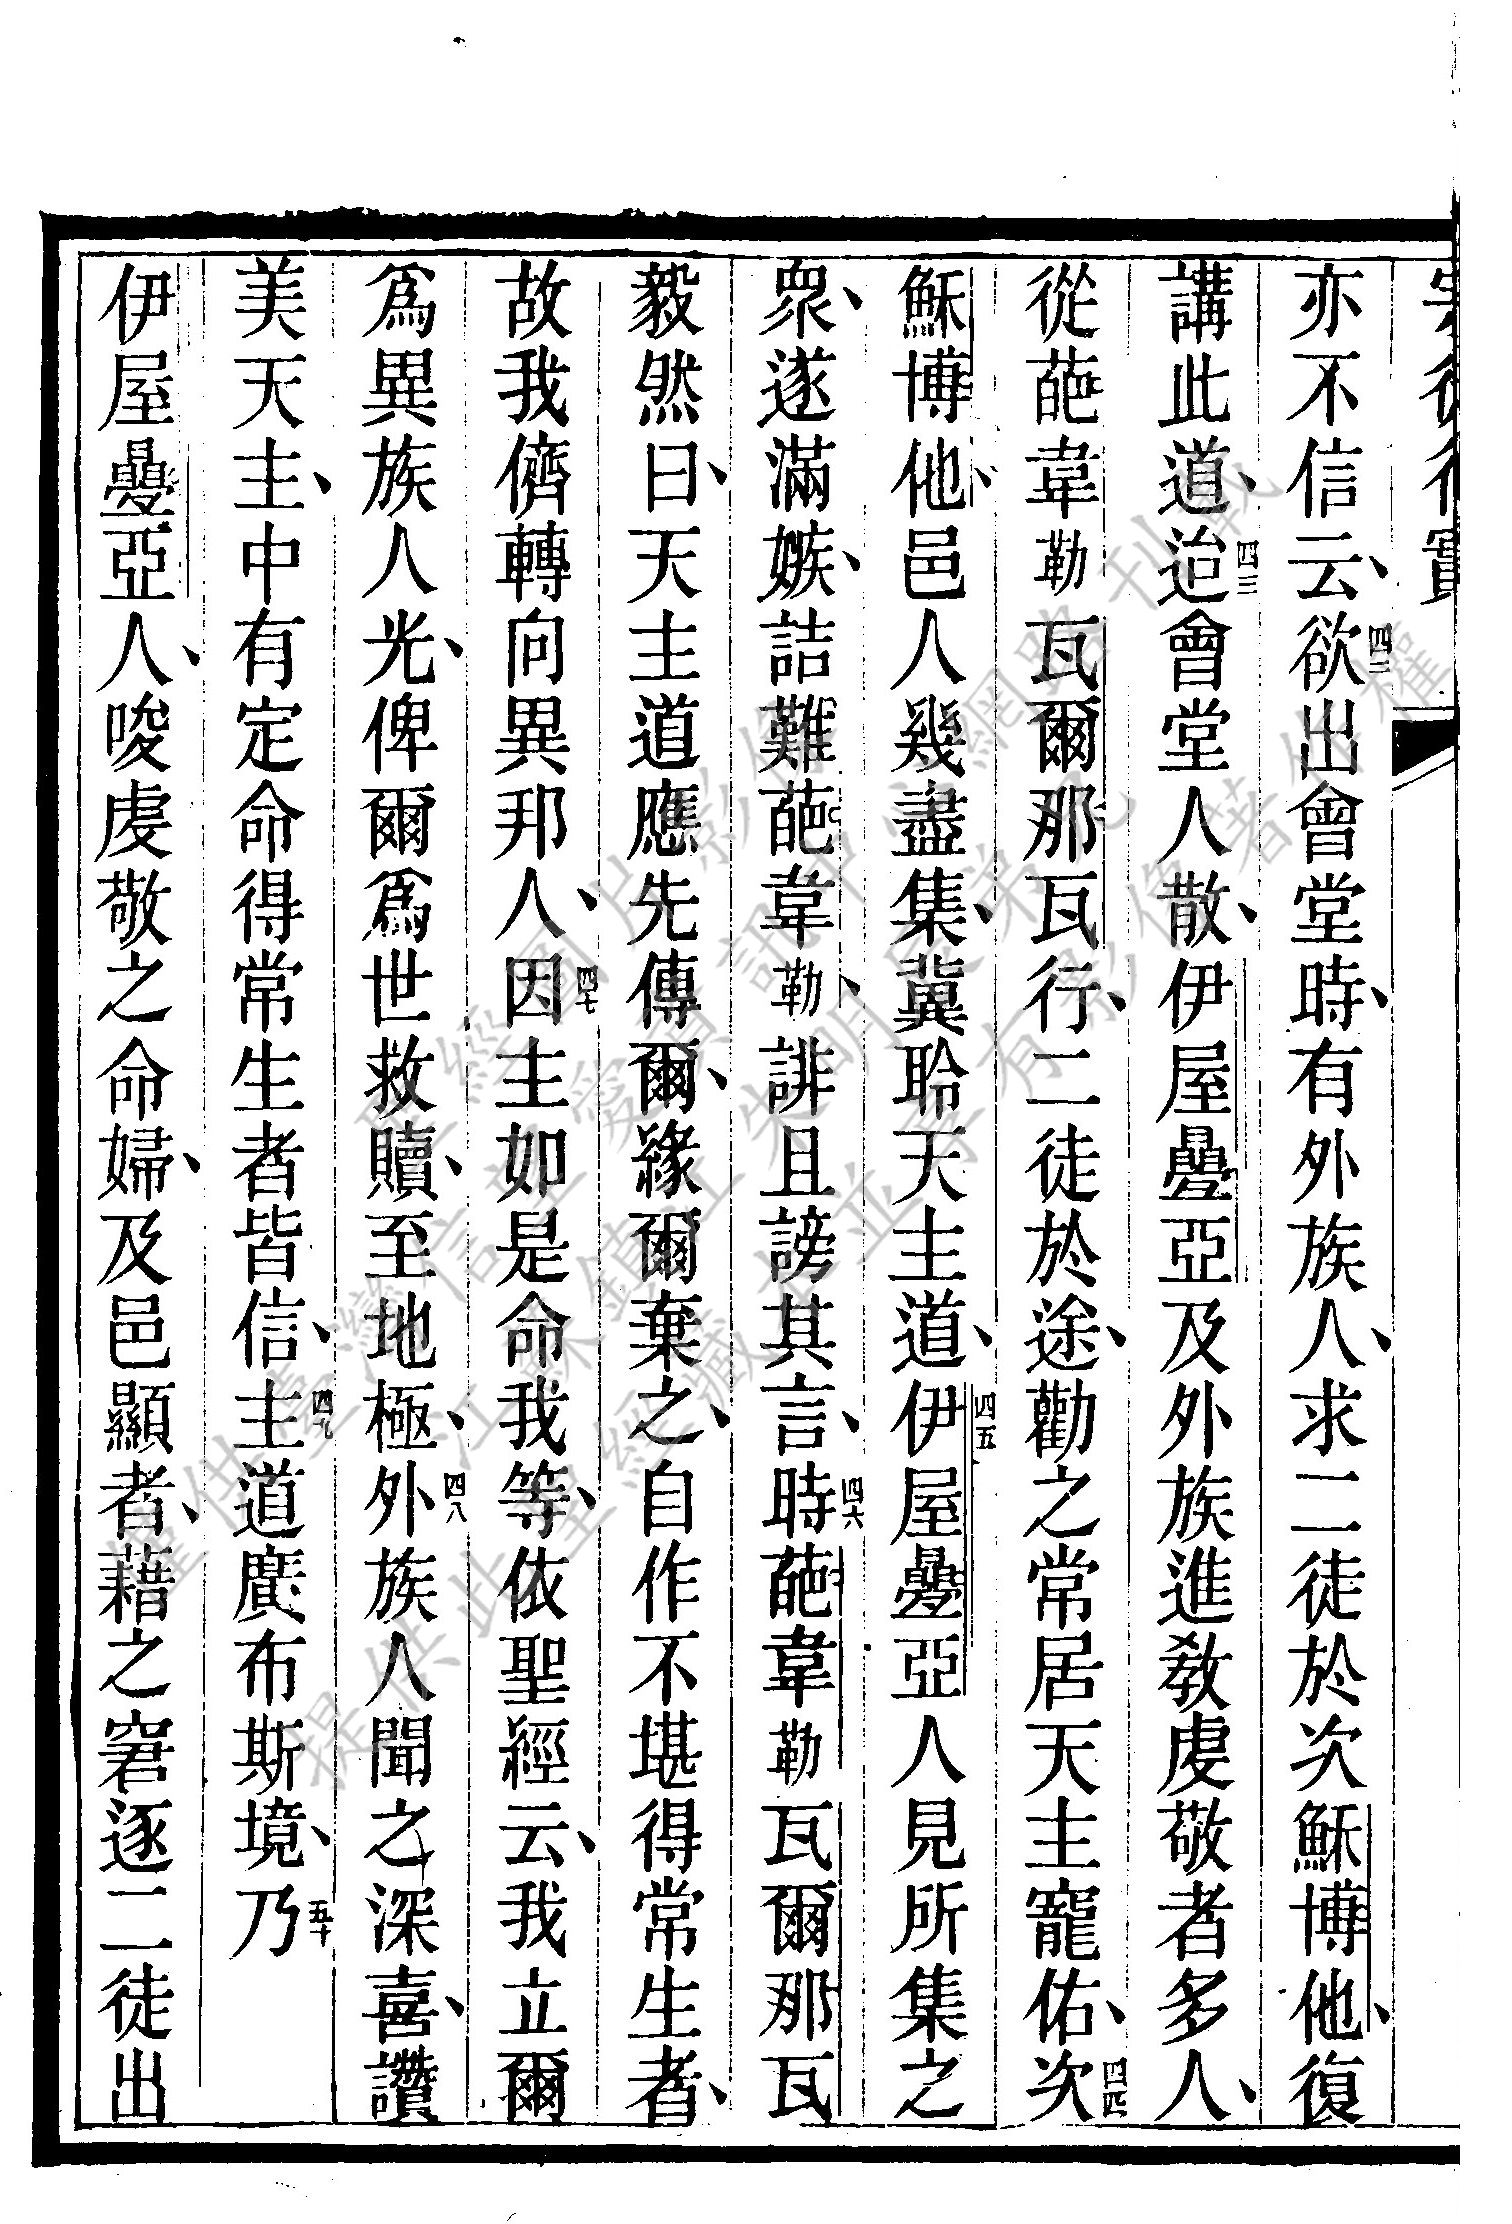 亦不信云、四二欲出會堂時、有外族人、求二徒於次穌博他、復
講此道、四三迨會堂人散、伊屋疊亞及外族進敎虔敬者多人、
從葩韋勒瓦爾那瓦行、二徒於途、勸之常居天主寵佑、四四次
穌博他、邑人幾盡集、冀聆天主道、四五伊屋疊亞人見所集之
衆、遂滿嫉、詰難葩韋勒、誹且謗其言、四六時葩韋勒瓦爾那瓦
毅然曰、天主道應先傳爾、緣爾棄之、自作不堪得常生者、
故我儕轉向異邦人、四七因主如是命我等、依聖經云、我立爾
爲異族人光、俾爾爲世救贖、至地極、四八外族人聞之深喜、讚
美天主、中有定命得常生者皆信、四九主道廣布斯境、五十乃
伊屋疊亞人、唆虔敬之命婦、及邑顯者、藉之窘逐二徒出